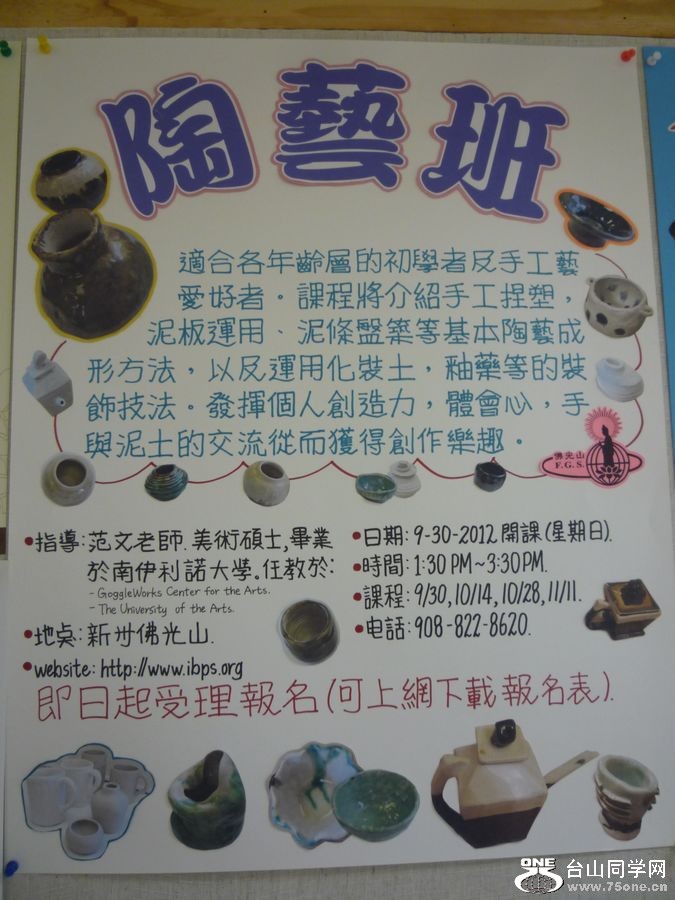 陶藝班
適合各年齡層的初學者及手工藝
愛好者。課程將介紹手工捏塑，
泥板運用、泥條盤築等基本陶藝成
形方法，以及運用化裝土，釉藥等的裝
飾技法。發揮個人創造力，體會心，手
與泥土的交流從而獲得創作樂趣。
佛光山
F.G.S.
•指導:范文老師.美術碩士,畢業
於南伊利諾大學。任教於:
- GoggleWorks Center for the Arts.
- The University of the Arts.
•地點:新州佛光山.
•website: http://www.ibps.org
•日期: 9-30-2012 開課 (星期日).
•時間: 1:30 PM~3:30 PM.
•課程: 9/30, 10/14, 10/28, 11/11.
•电話: 908-822-8620.
即日起受理報名(可上網下載報名表).
ONE
台山同学网
www.75one.cn